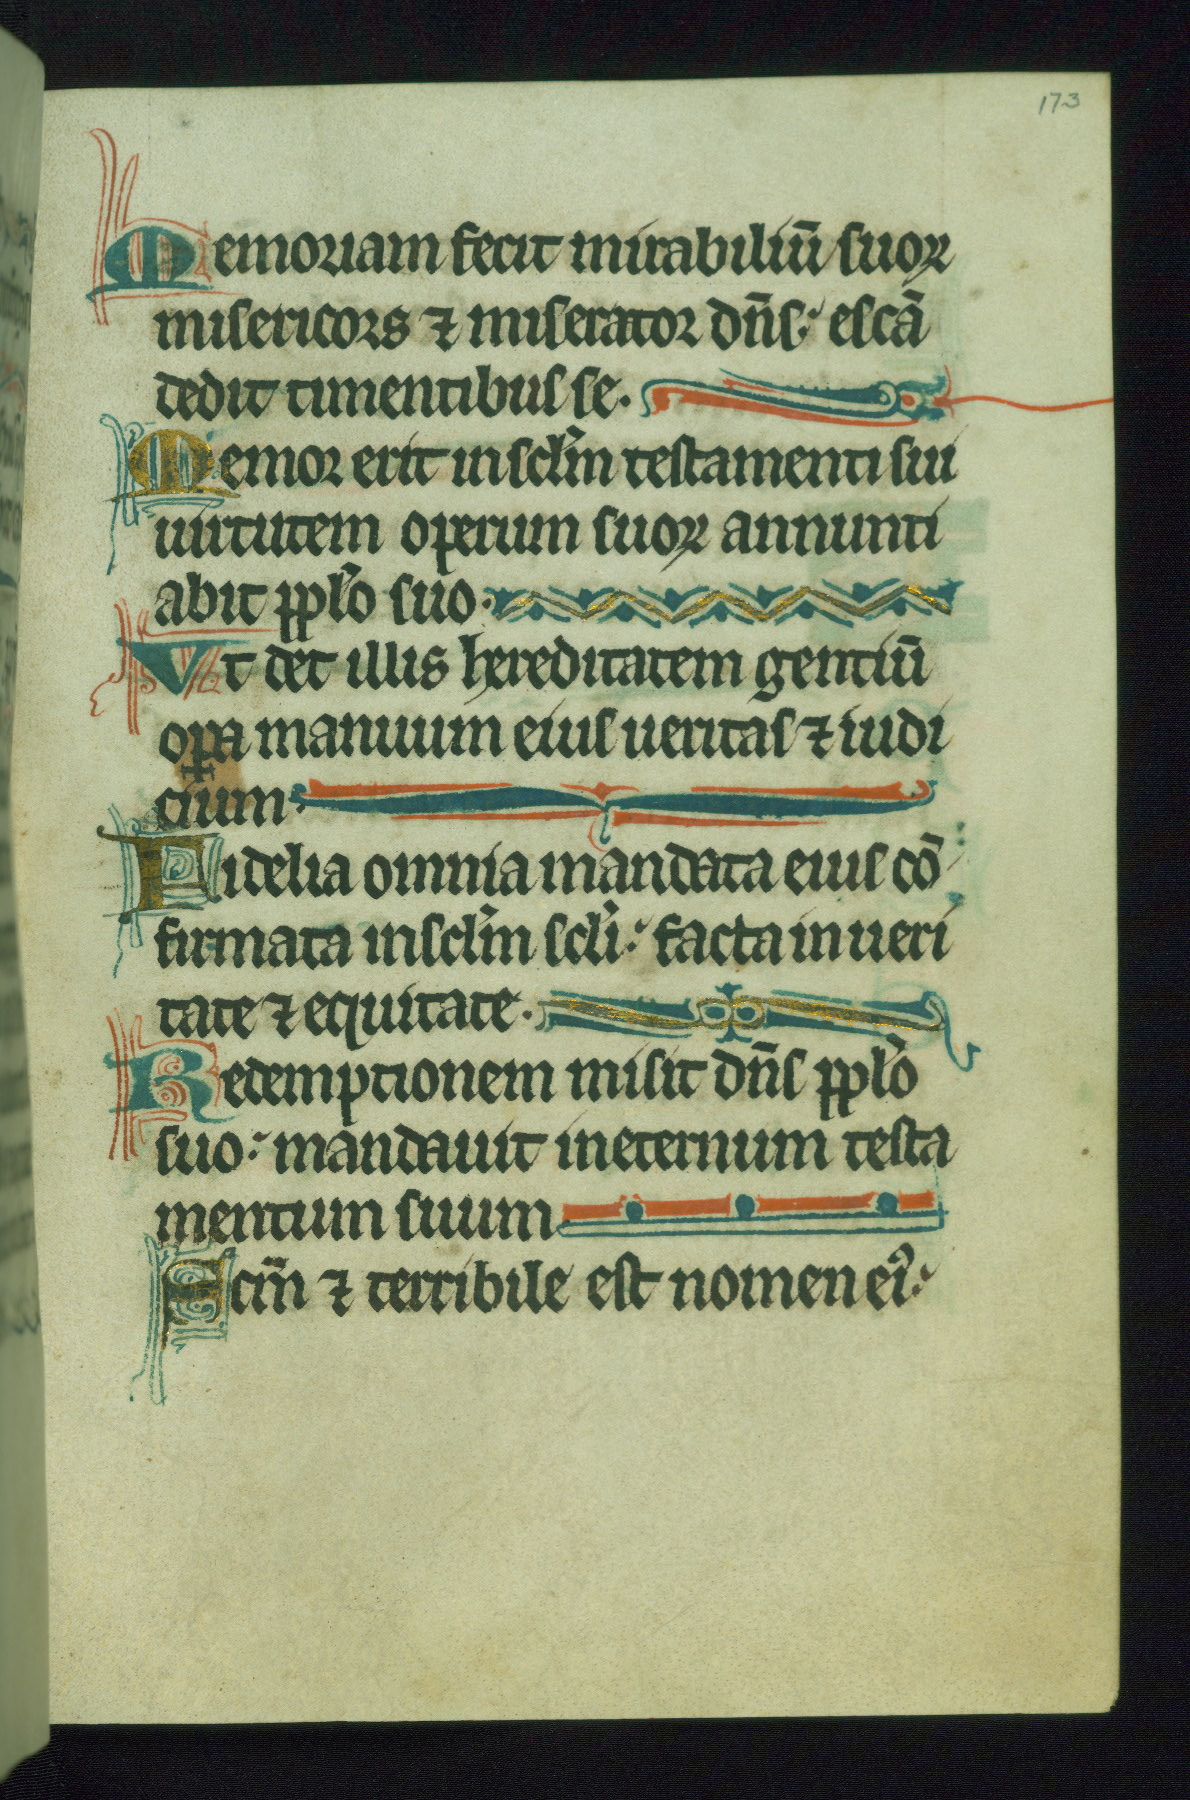 173
Memoriam fecit mirabiliū suoꝝ
misericors ⁊ miserator dn̄s: escā
dedit timentibus se.
Memor erit in sclm̄ testamenti sui
uirtutem operum suoꝝ annunti
abit pplo suo.
Vt det illis hereditatem gentiū
oꝑa manuum eius ueritas ⁊ iudi
cium.
Fidelia omnia mandata eius cō
firmata in sclm̄ scli: facta in ueri
tate ⁊ equitate.
Redemptionem misit dn̄s pplo
suo: mandauit in eternum testa
mentum suum
Scm̄ ⁊ terribile est nomen eiꝰ: